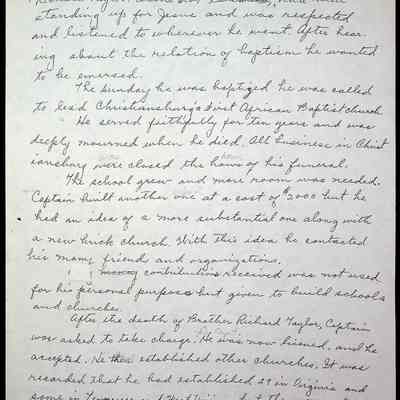 standing up for Jesus and was respected
and listened to wherever he went. After hear-
ing about the relation of baptism he wanted
to be emersed.
The Sunday he was baptized he was called
to lead Christiansburg's First African Baptist Church
He served faithfully for ten years and was
deeply mourned when he died. All business in Christ
iansburg were closed the hour of his funeral.
The school grew and more room was needed.
Captain built another one at a cost of $2000 but he
had an idea of a more substantial one along with
a new brick church. With this idea he contacted
his many friends and organizations.
many contributions received was not used
for his personal purposes but given to build schools
and churches.
After the death of Brother Richard Taylor, Captain
was asked to take charge. He was now lisened, and he
accepted. He established other churches. It was
recorded that he had established 27 in Virginia and
some in